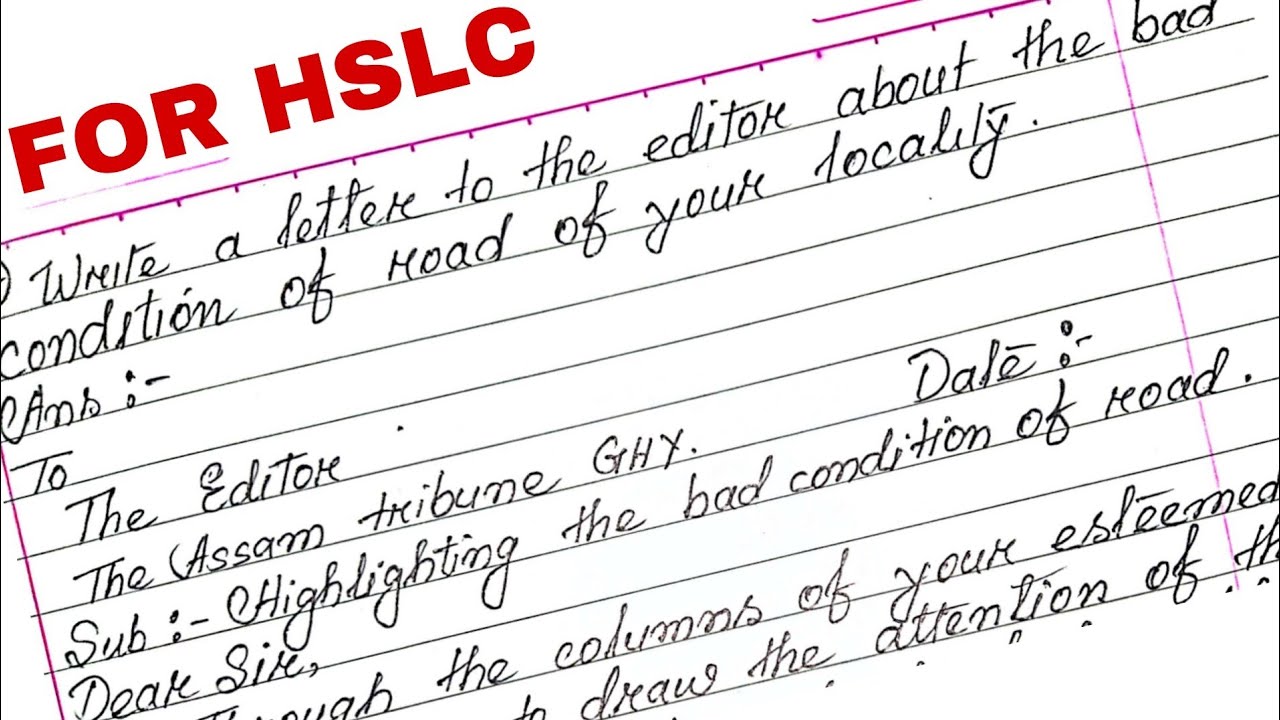 FOR HSLC
Write a letter to the editor about the bad
condition of road of your locality.
Ans :-
Date :-
To
The Editor
The Assam tribune GHY.
Sub :- Highlighting the bad condition of road.
Dear Sir,
Through the columns of your esteemed
to draw the attention of